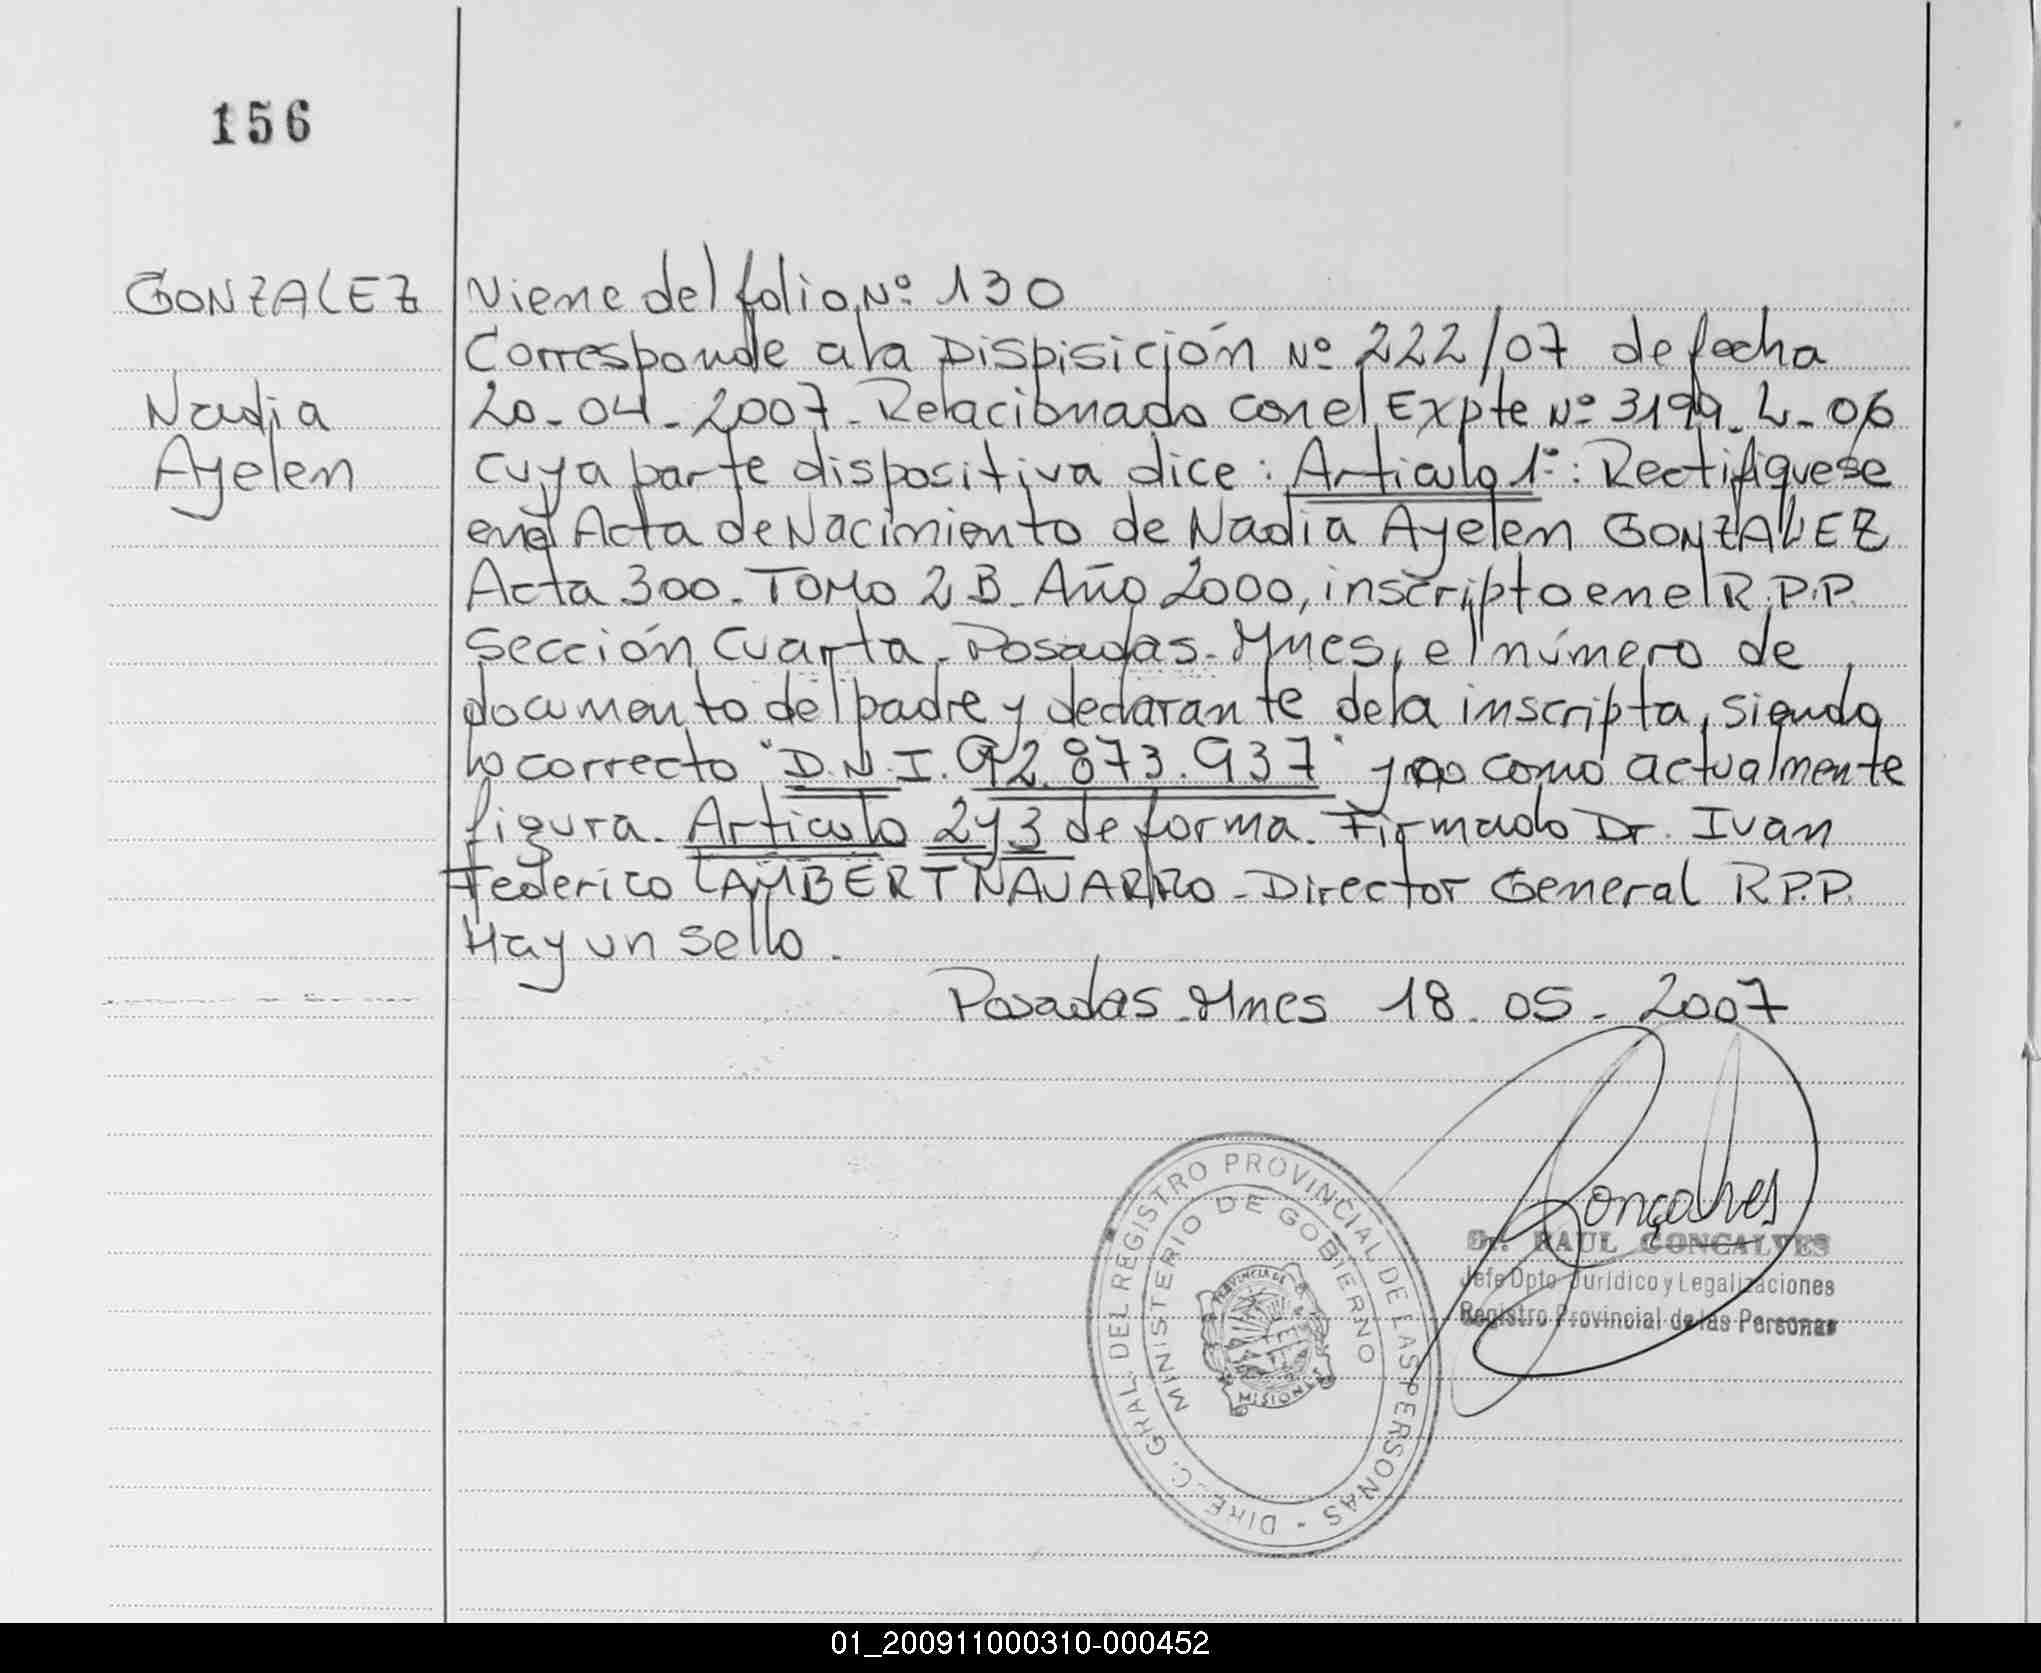 156
GONZALEZ
Nadia
Ayelen
Viene del folio Nº 130
Corresponde a la Dispisición Nº 222/07 de fecha
20-04-2007. Relacionado con el Expte Nº 3199-L-06
cuya parte dispositiva dice: Articulo 1º: Rectifiquese
en el Acta de Nacimiento de Nadia Ayelen GONZALEZ
Acta 300. TOMO 2 B. Año 2000, inscripto en el R.P.P.
Sección Cuarta. Posadas. Mnes, el número de
documento del padre y declarante de la inscripta, siendo
lo correcto "D.N.I. 92.873.937" y no como actualmente
figura. Articulo 2 y 3 de forma. Firmado Dr. Ivan
Federico LAMBERT NAVARRO - Director General R.P.P.
Hay un sello.
Posadas. Mnes 18-05-2007
Gonçalves
Dr. RAUL GONCALVES
Jefe Dpto Jurídico y Legalizaciones
Registro Provincial de las Personas
DIREC. GRAL. DEL REGISTRO PROVINCIAL DE LAS PERSONAS -
MINISTERIO DE GOBIERNO
PROVINCIA DE
MISIONES
01_200911000310-000452